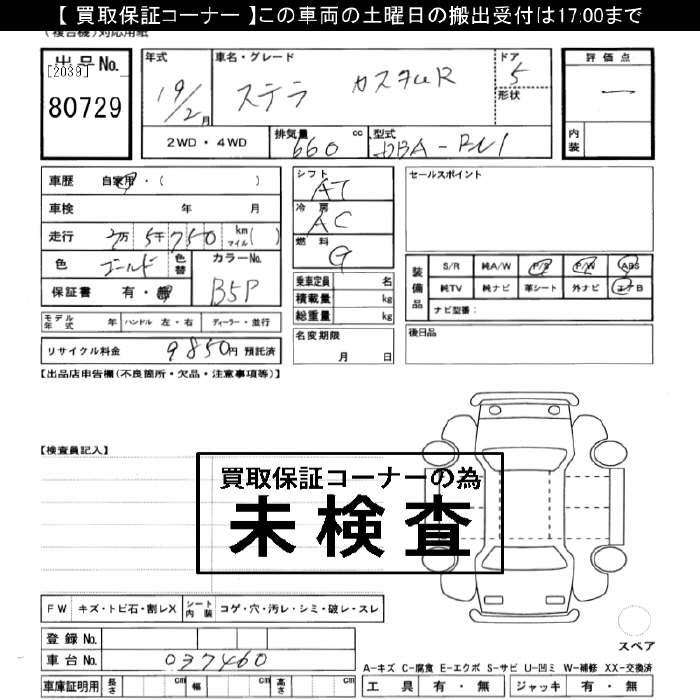 【 買取保証コーナー 】この車両の土曜日の搬出受付は17:00まで
(複合機)対応用紙
出品No.
[2039]
80729
年式
19/2月
車名・グレード
ステラ カスタムR
ドア
5
形状
評価点
—
内装
2WD・4WD
排気量
660 cc
型式
DBA-RN1
車歴 自家用・( )
車検 年 月
走行 2万 5千 750 km マイル( )
色 ゴールド 色替
カラーNo.
B5P
保証書 有・無
モデル年式 年 ハンドル 左・右 ディーラー・並行
リサイクル料金 9850円 預託済
シフト
AT
冷房
AC
燃料
G
乗車定員 名
積載量 kg
総重量 kg
名変期限
月 日
セールスポイント
装備品
S/R 純A/W P/S P/W ABS
純TV 純ナビ 革シート 外ナビ エアB
ナビ型番:
後日品
【出品店申告欄(不良箇所・欠品・注意事項等)】
【検査員記入】
買取保証コーナーの為
未検査
FW キズ・トビ石・割レX シート内装 コゲ・穴・汚レ・シミ・破レ・スレ
スペア
登録No.
車台No. 037460
A-キズ C-腐食 E-エクボ S-サビ U-凹ミ W-補修 XX-交換済
車庫証明用 長さ cm 幅 cm 高さ cm
工具 有・無 ジャッキ 有・無